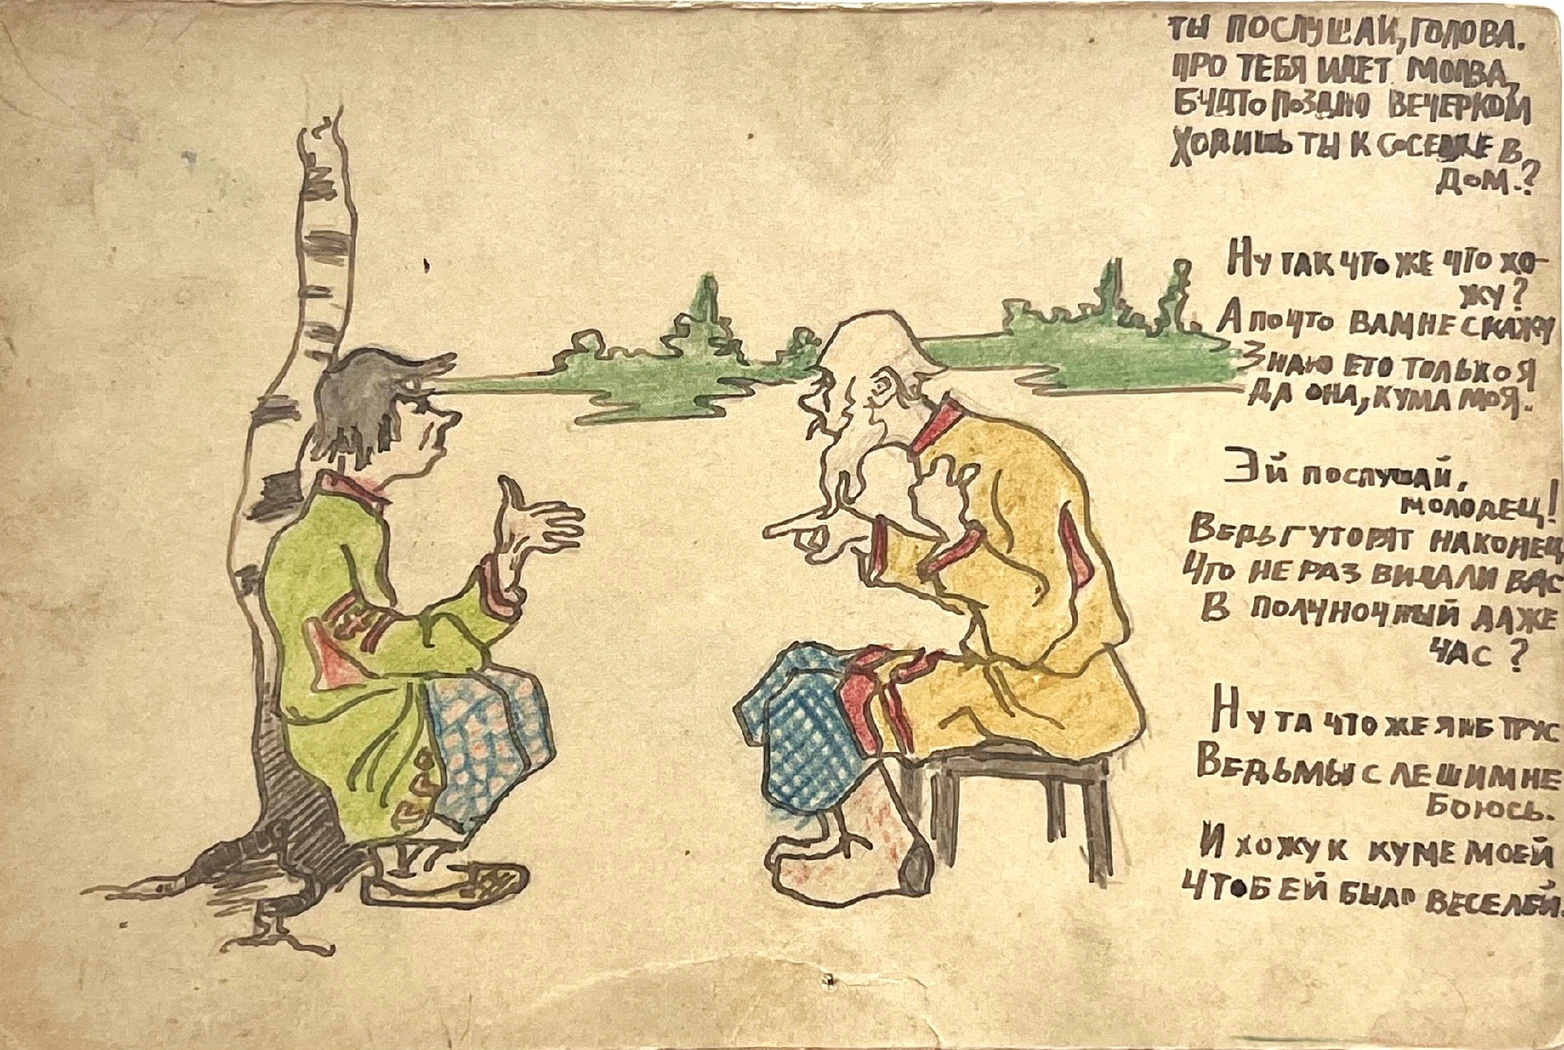 ТЫ ПОСЛУШАЙ, ГОЛОВА.
ПРО ТЕБЯ ИДЕТ МОЛВА,
БУДТО ПОЗДНО ВЕЧЕРКОМ
ХОДИШЬ ТЫ К СОСЕДКЕ В
ДОМ.?
НУ ТАК ЧТО ЖЕ ЧТО ХО-
ЖУ?
А ПОЧТО ВАМ НЕ СКАЖУ
ЗНАЮ ЕТО ТОЛЬКО Я
ДА ОНА, КУМА МОЯ.
ЭЙ ПОСЛУШАЙ,
МОЛОДЕЦ!
ВЕДЬ ГУТОРЯТ НАКОНЕЦ
ЧТО НЕ РАЗ ВИДАЛИ ВАС
В ПОЛУНОЧНЫЙ ДАЖЕ
ЧАС?
НУ ТА ЧТО ЖЕ Я НБ ТРУС
ВЕДЬМЫ С ЛЕШИМ НЕ
БОЮСЬ.
И ХОЖУ К КУМЕ МОЕЙ
ЧТОБ ЕЙ БЫЛО ВЕСЕЛЕЙ.